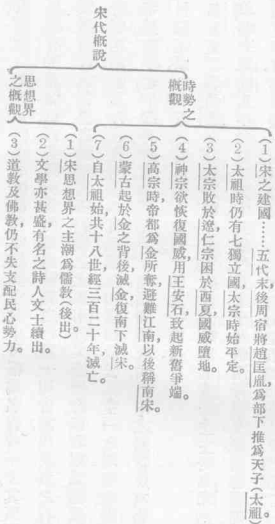 宋代概說
時勢之
概觀
(1)宋之建國……五代末後周宿將趙匡胤,爲部下推爲天子(太祖)。
(2)太祖時仍有七獨立國,太宗時始平定。
(3)太宗敗於遼,仁宗困於西夏,國威墮地。
(4)神宗欲恢復國威,用王安石,致起新舊爭端。
(5)高宗時,帝都爲金所奪,避難江南,以後稱南宋。
(6)蒙古起於金之背後,滅金,復南下滅宋。
(7)自太祖始,共十八世,經三百二十年滅亡。
思想界
之概觀
(1)宋思想界之主潮爲儒教(後出)。
(2)文學亦甚盛,有名之詩人文士續出。
(3)道教及佛教仍不失支配民心勢力。